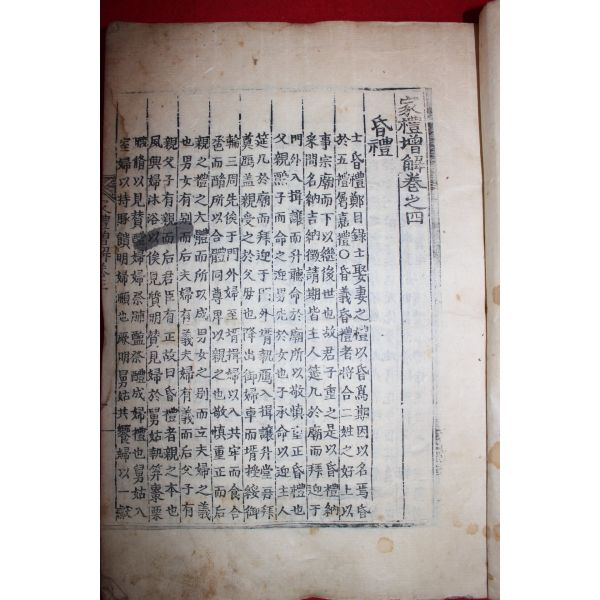 家禮增解卷之四
昏禮
士昏禮鄭目録士娶妻之禮以昏爲期因以名焉昏
於五禮屬嘉禮○昏義昏禮者將合二姓之好上以
事宗廟而下以繼後世也故君子重之是以昏禮納
采問名納吉納徵請期皆主人筵几於廟而拜迎于
門外入揖讓而升聽命於廟所以敬慎重正昏禮也
父親醮子而命之迎男先於女也子承命以迎主人
筵几於廟而拜迎于門外壻執鴈入揖讓升堂再拜
奠鴈盖親受之於父母也降出御婦車而壻授綏御
輪三周先俟于門外婦至壻揖婦以入共牢而食合
巹而酳所以合體同尊卑以親之也敬慎重正而后
親之禮之大體而所以成男女之别而立夫婦之義
也男女有别而后夫婦有義夫婦有義而后父子有
親父子有親而后君臣有正故曰昏禮者禮之本也
夙興婦沐浴以俟見質明賛見婦於舅姑執笲棗栗
腶脩以見賛醴婦婦祭脯醢祭醴成婦禮也舅姑入
室婦以特豚饋明婦順也厥明舅姑共饗婦以一獻
家禮增解卷